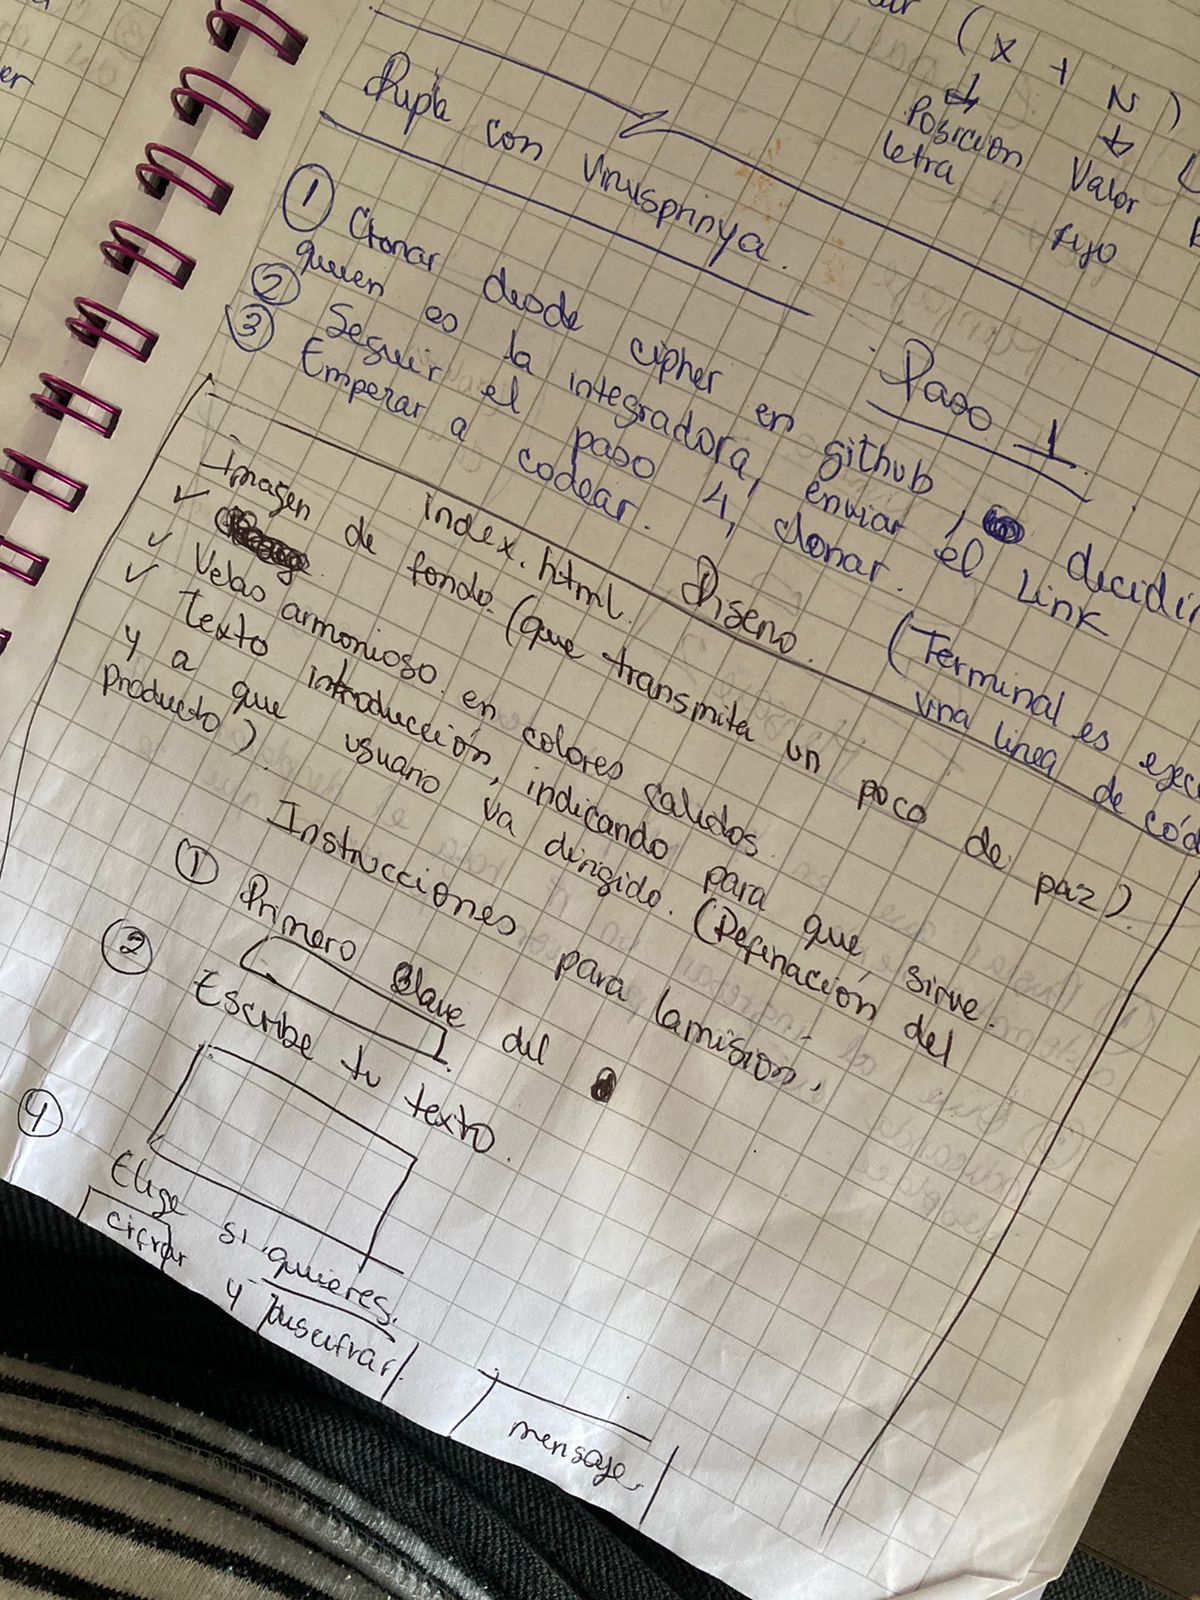 (x + N)
Posicion
letra
Valor
fijo
er
Dupla con Virusprinya.
Paso 1
① Clonar desde cipher en github, decidir
quien es la integradora, enviar el Link
② Seguir el paso 4, clonar. (Terminal es ejec
③ Empezar a codear. una linea de cód
index.html. Diseno.
Imagen de fondo. (que transmita un poco de paz).
✓
✓ Velas armonioso en colores calidos.
✓ texto introducción, indicando para que sirve.
y a que usuario va dirigido. (Definación del
producto).
Instrucciones para la misión,
① Primero Clave del
② Escribe tu texto.
4 Elige si quieres.
cifrar y Discifrar
mensaje